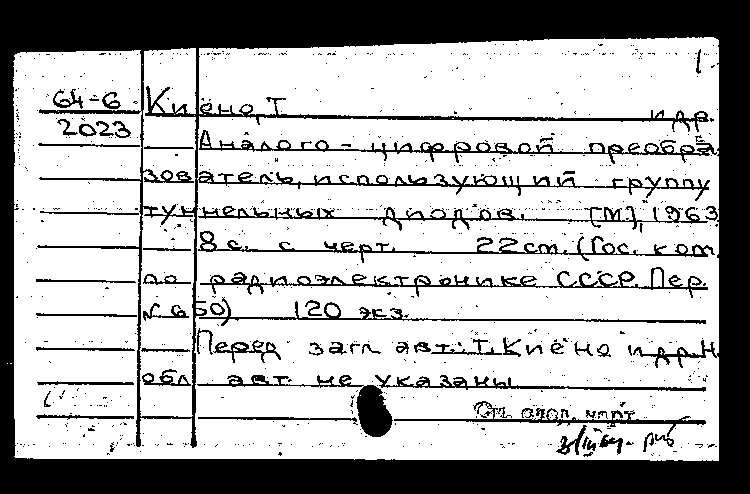 1
64-6 Киёно, Т. и др.
2023
Аналого-цифровой преобра
зователь, использующий группу
туннельных диодов. [М], 1963
8 с. с черт. 22 см. (Гос. ком.
по радиоэлектронике СССР. Пер.
№ 650) 120 экз.
Перед загл. авт.: Т. Киёно и др. Н
обл авт. не указаны
См. след. карт.